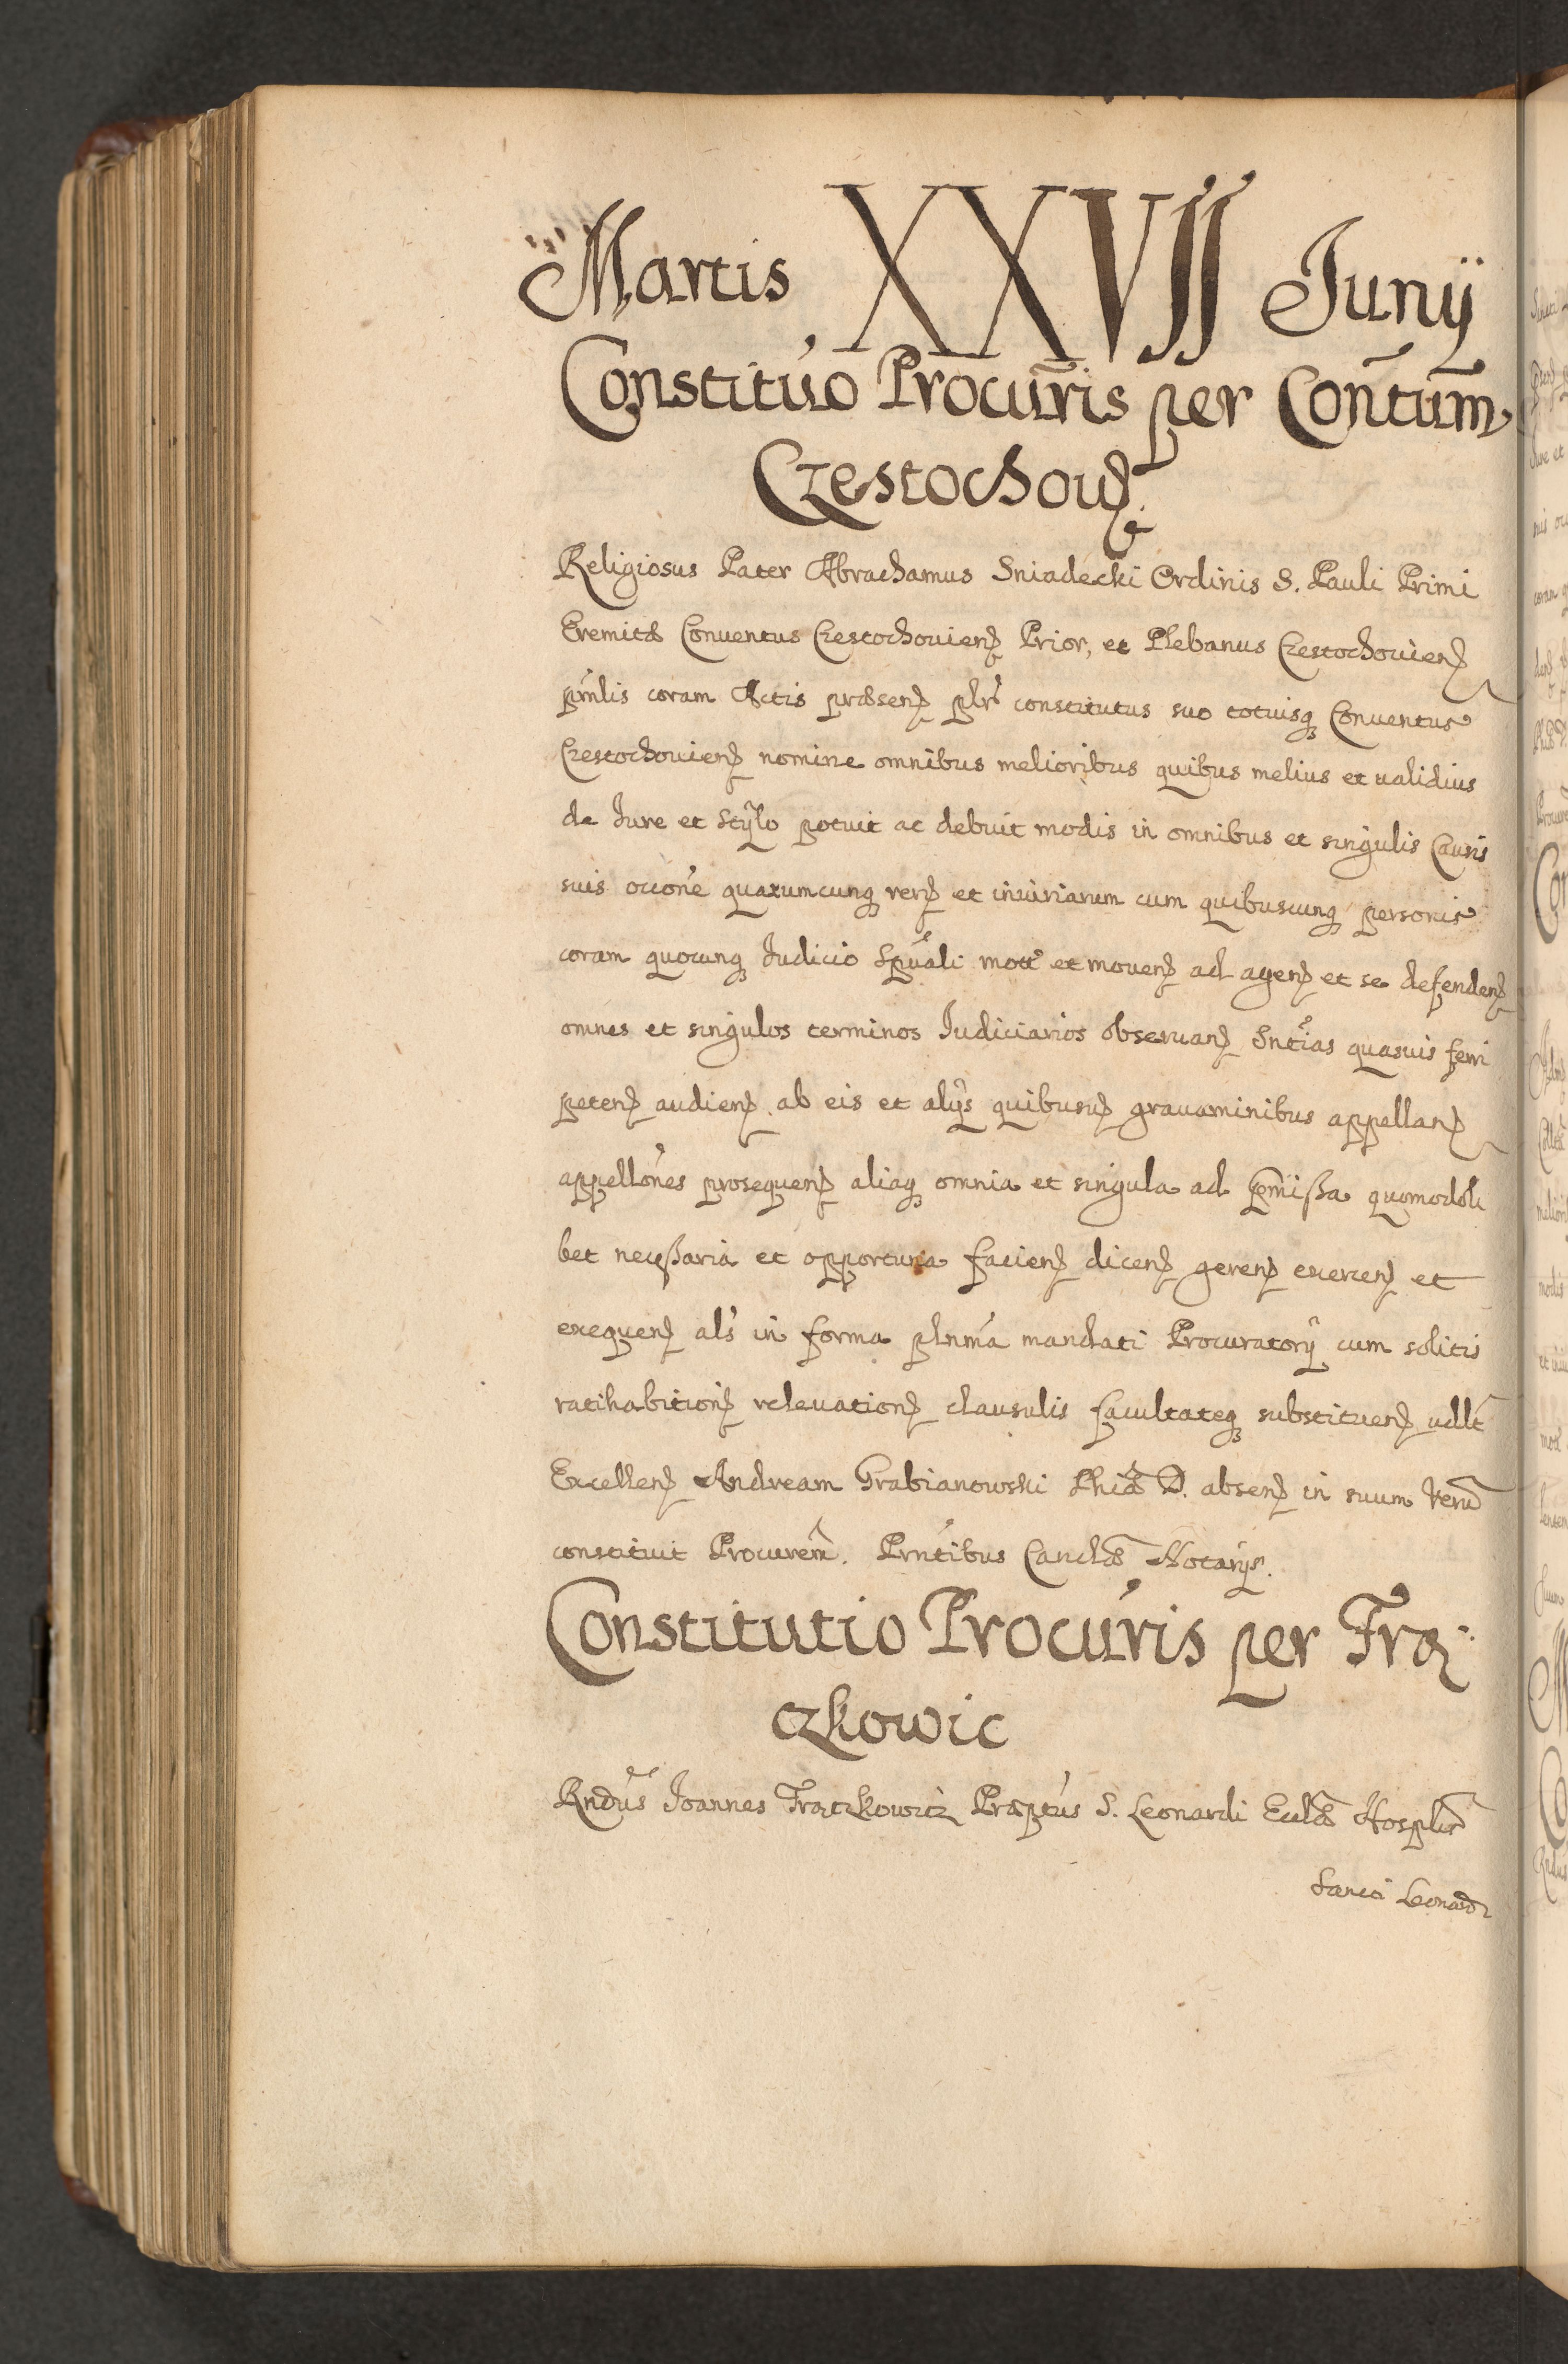 Martis XXVIJ Junij
Constituo Procuris per Contum
Czestochow
Religiosus Pater Abrachamus Sniadecki Ordinis S. Pauli Primi
Eremitæ Conuentus Czestochouien Prior, et Plebanus Czestochouien
prnlis coram Actis præsen plr constitutus suo totiusq Conuentus
Czestochouien nomine omnibus melioribus quibus melius et ualidius
de Iure et Stylo potuit ac debuit modis in omnibus et singulis Causis
suis occone quarumcunq rer et iniuriarum cum quibuscunq personis
coram quocunq Iudicio Spuali mott et mouen ad agen et se defenden
omnes et singulos terminos Iudiciarios obseruan Sntias quasuis ferri
peten audien ab eis et alijs quibusuis grauaminibus appellan
appellones prosequen aliaq omnia et singula ad pmissa quomodoli
bet necessaria et opportuna facien dicen geren exercen et
exequen als in forma plnma mandati Procuratorij cum solitis
ratihabition releuation clausulis facultateq substituen udlt
Excellen Andream Grabianowski Phiæ D. absen in suum Veru
constituit Procurem. Prntibus Canclæ Notarijs.
Constitutio Procuris per Frą
czkowic
Rndus Joannes Frączkowicz Præptus S. Leonardi Eccliæ Hosplis
Sancti Leonardi